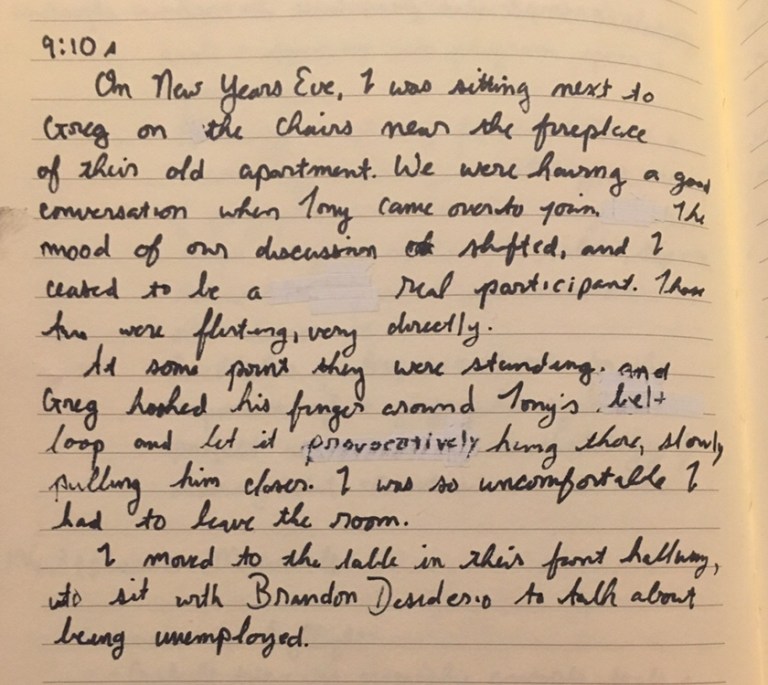 9:10 A
On New Years Eve, I was sitting next to
Greg on the chairs near the fireplace
of their old apartment. We were having a good
conversation when Tony came over to join. The
mood of our discussion shifted, and I
ceased to be a real participant. Those
two were flirting, very directly.
At some point they were standing. and
Greg hooked his finger around Tony's belt
loop and let it provocatively hang there, slowly
pulling him closer. I was so uncomfortable I
had to leave the room.
I moved to the table in their front hallway,
to sit with Brandon Desiderio to talk about
being unemployed.